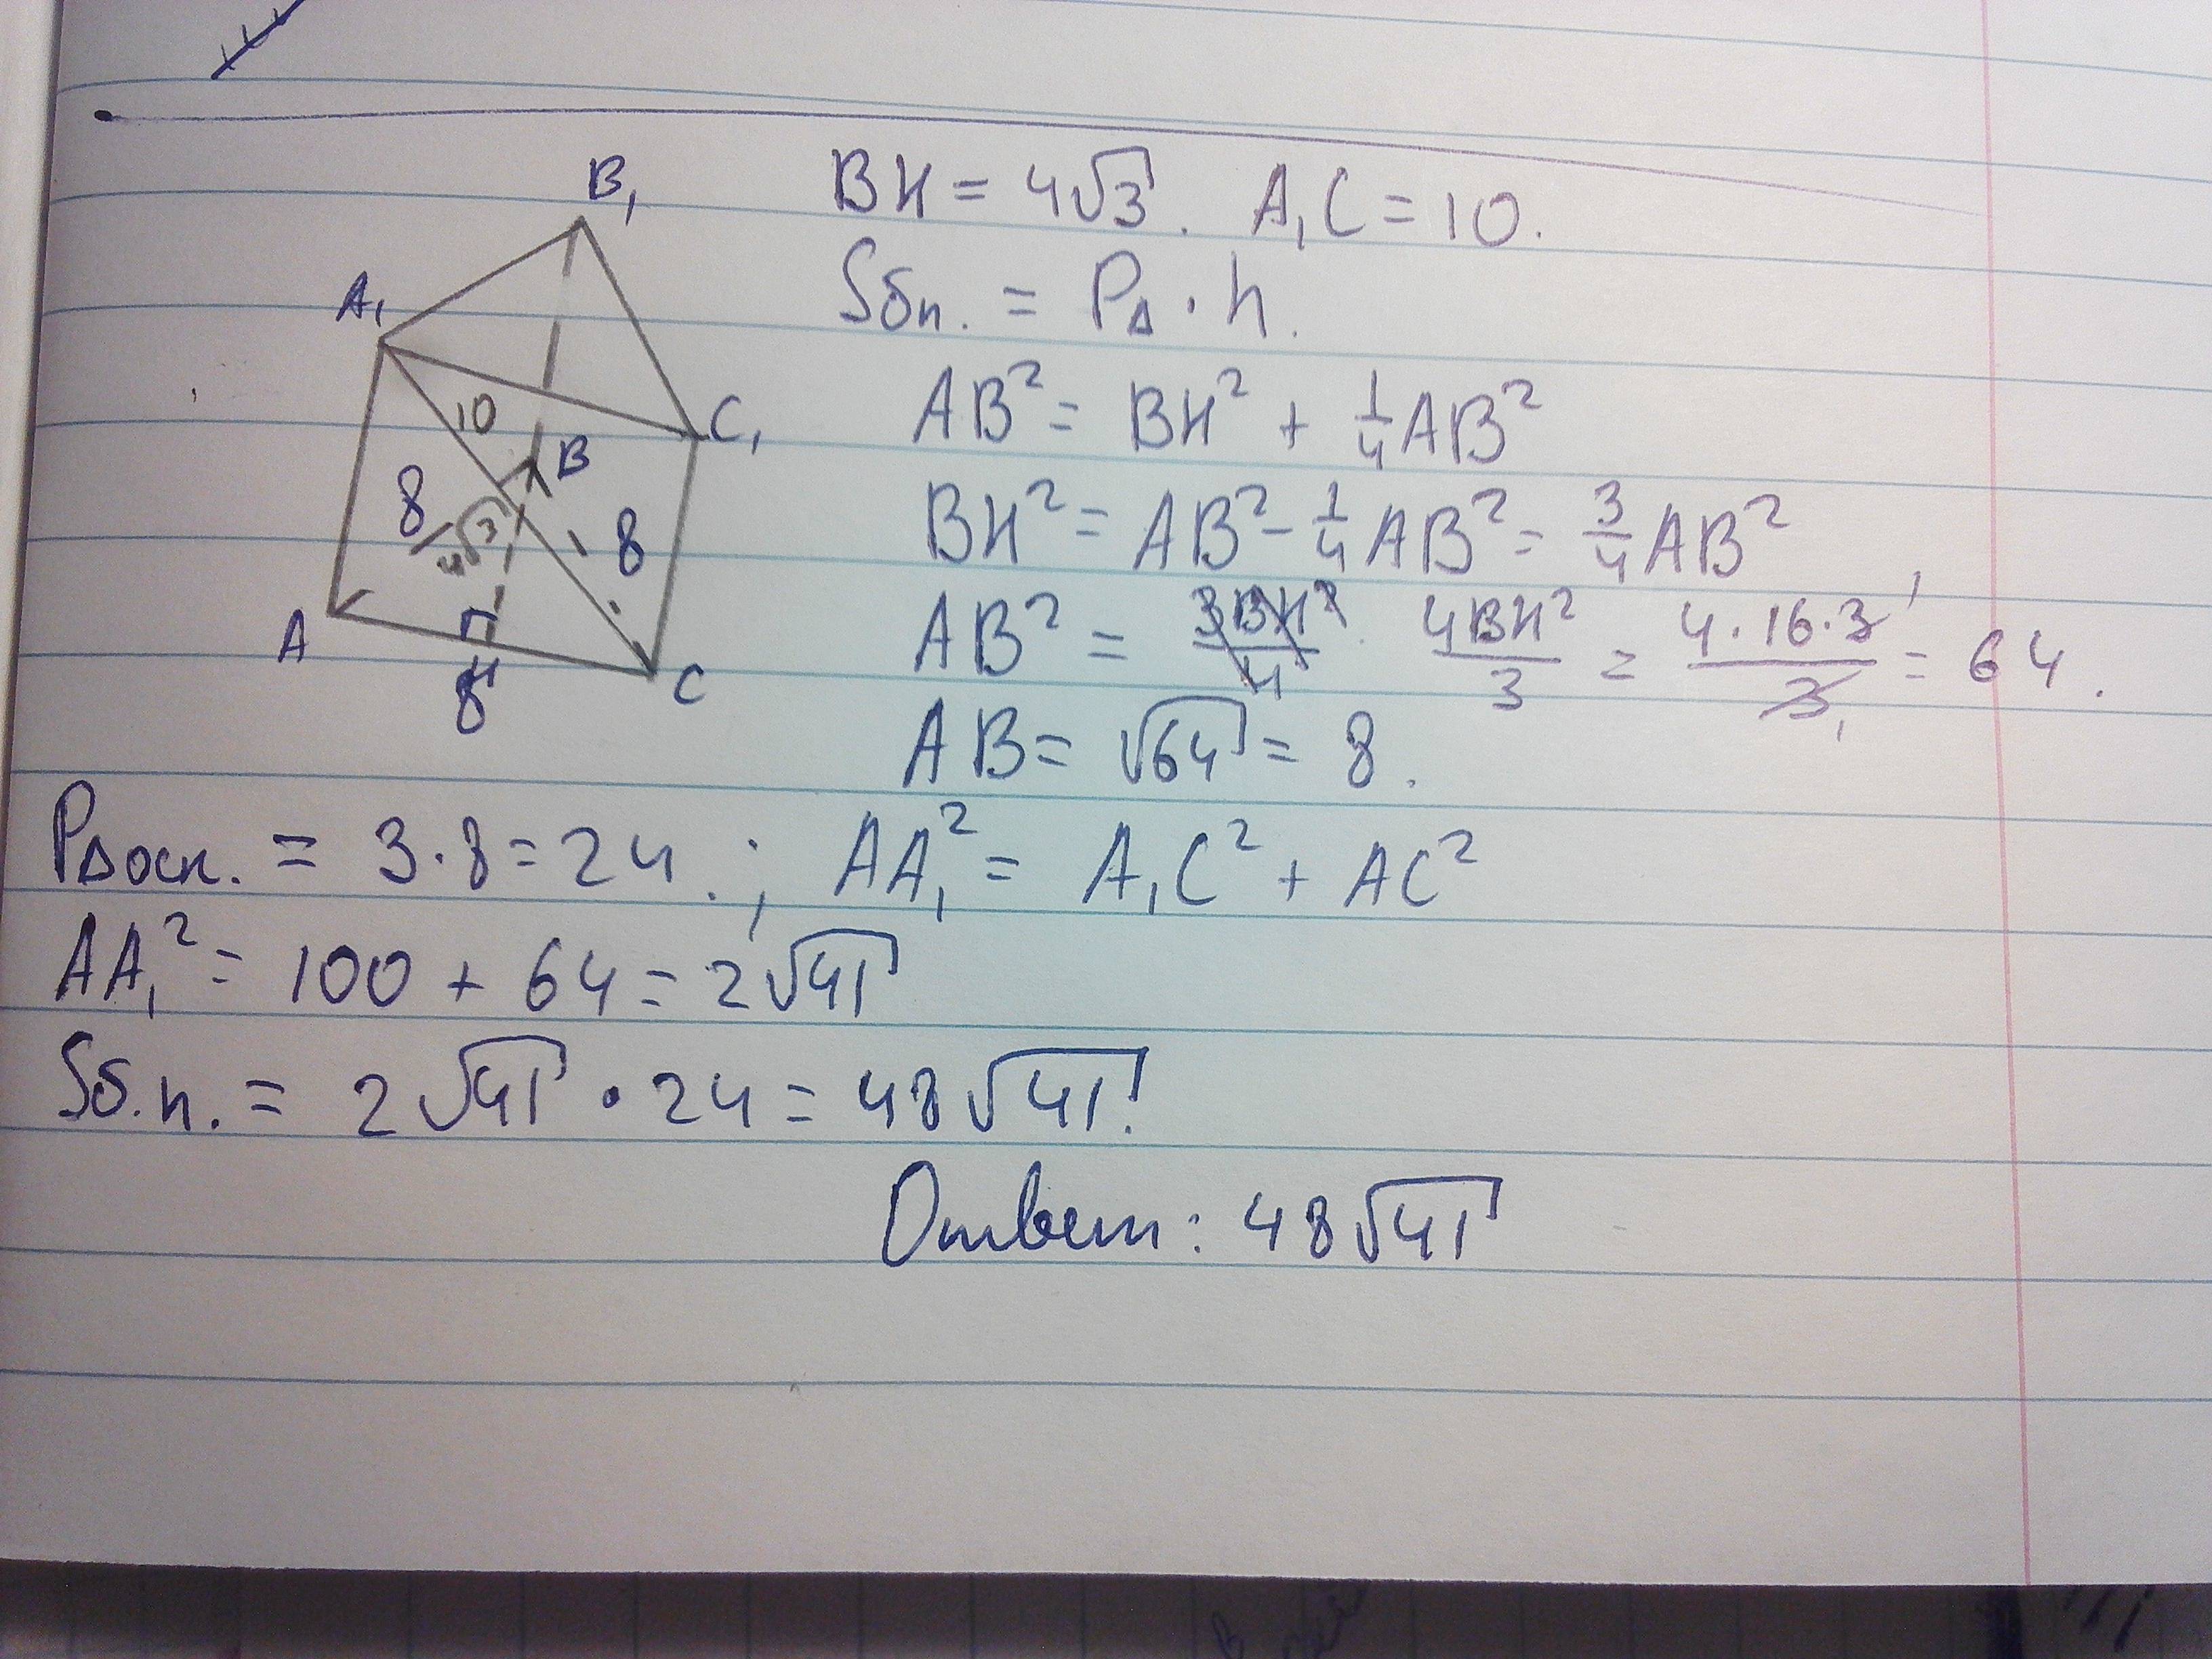 B₁
A₁
C₁
10
B
8
8
4√3
A
H
8
C
BH = 4√3. A₁C = 10.
Sбп. = P△ · h.
AB² = BH² + 1/4 AB²
BH² = AB² - 1/4 AB² = 3/4 AB²
AB² = 3BH²/4 4BH²/3 = 4·16·3/3 = 64.
AB = √64 = 8.
P△осн. = 3·8 = 24.; AA₁² = A₁C² + AC²
AA₁² = 100 + 64 = 2√41
Sб.п. = 2√41 · 24 = 48√41.
Ответ: 48√41